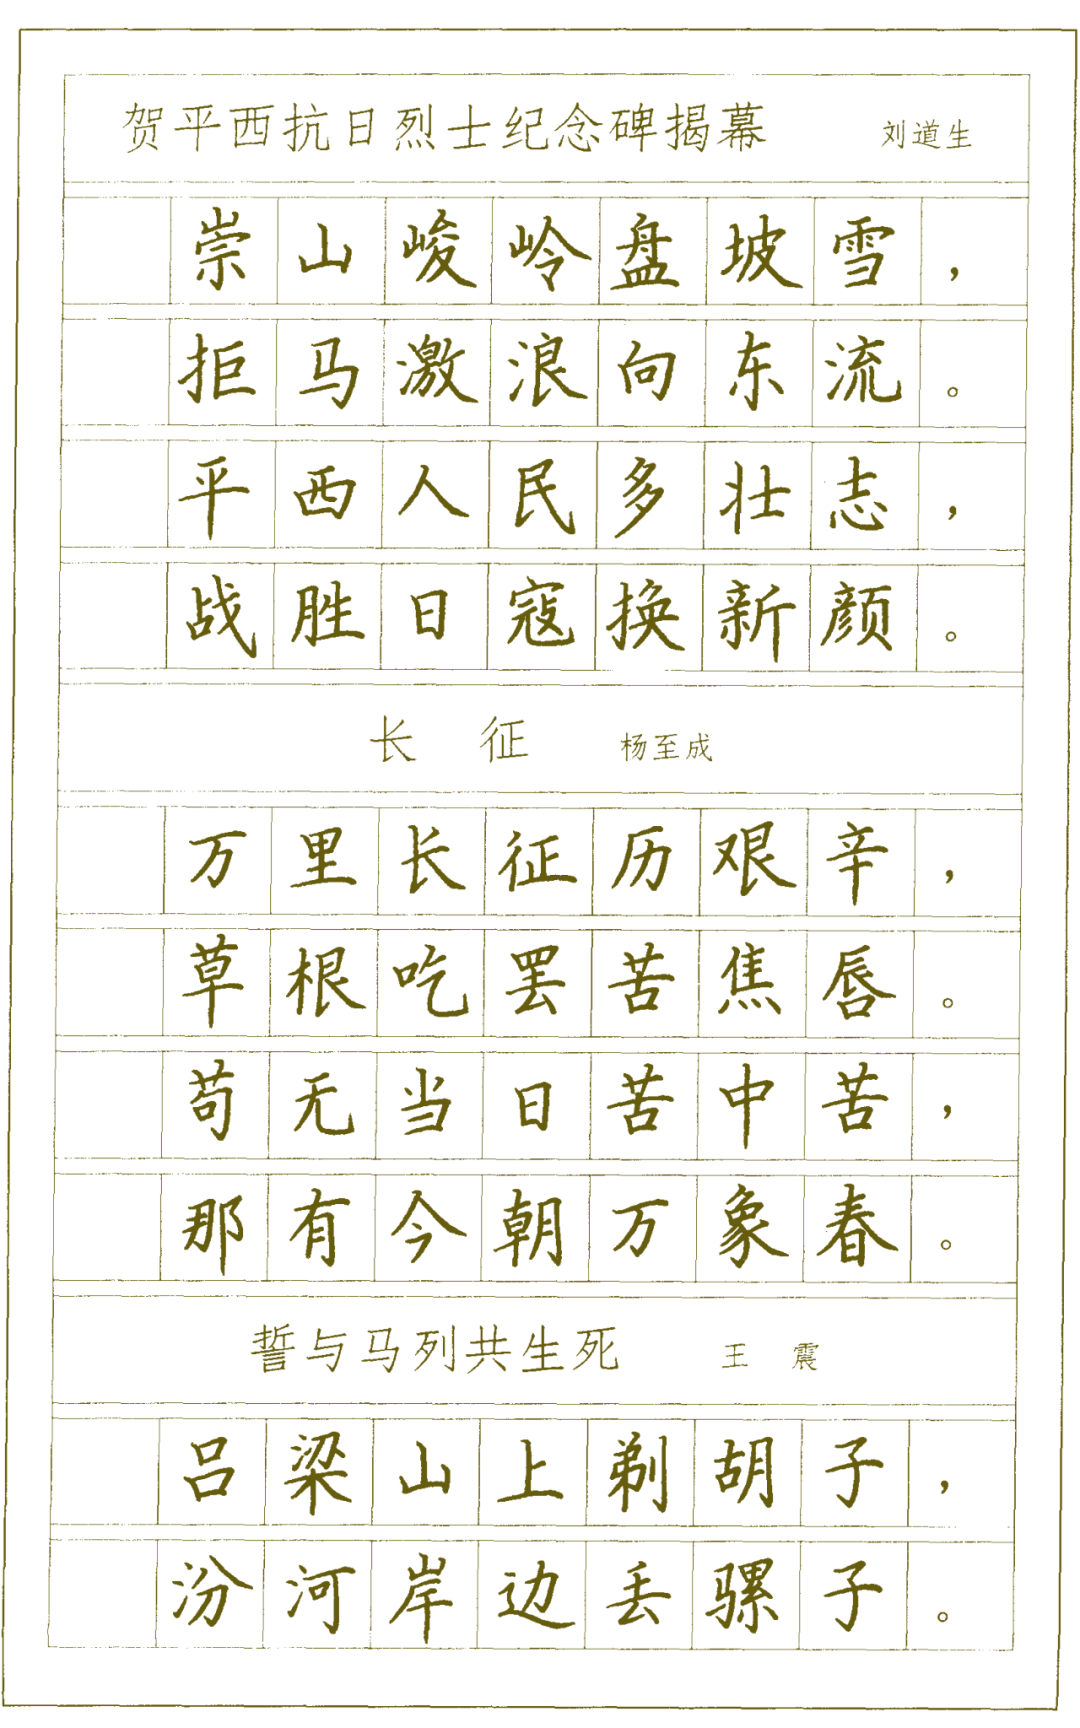 贺平西抗日烈士纪念碑揭幕 刘道生
崇山峻岭盘坡雪，
拒马激浪向东流。
平西人民多壮志，
战胜日寇换新颜。
长 征 杨至成
万里长征历艰辛，
草根吃罢苦焦唇。
苟无当日苦中苦，
那有今朝万象春。
誓与马列共生死 王 震
吕梁山上剃胡子，
汾河岸边丢骡子。